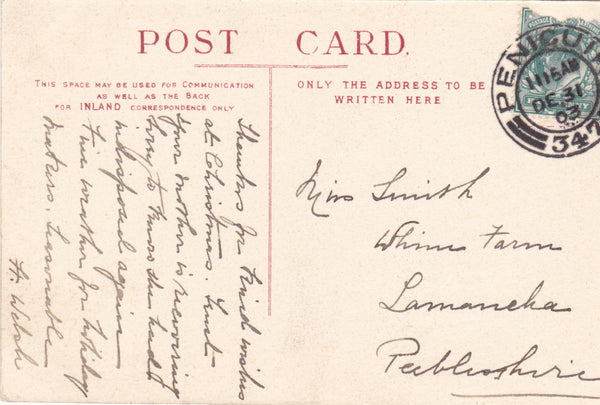 POST CARD.
THIS SPACE MAY BE USED FOR COMMUNICATION
AS WELL AS THE BACK
FOR INLAND CORRESPONDENCE ONLY
ONLY THE ADDRESS TO BE
WRITTEN HERE
PENICUIK
11 15 AM
DE 31
03
347
Thanks for kind wishes
at Christmas. Trust
your mother is recovering
Sorry to know she had t
indisposed again
Fine weather for holiday
makers. Seasonable
H. Welsh
Miss Smith
Whim Farm
Lamancha
Peeblesshire